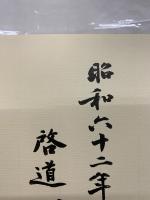 昭和六十二年
啓道